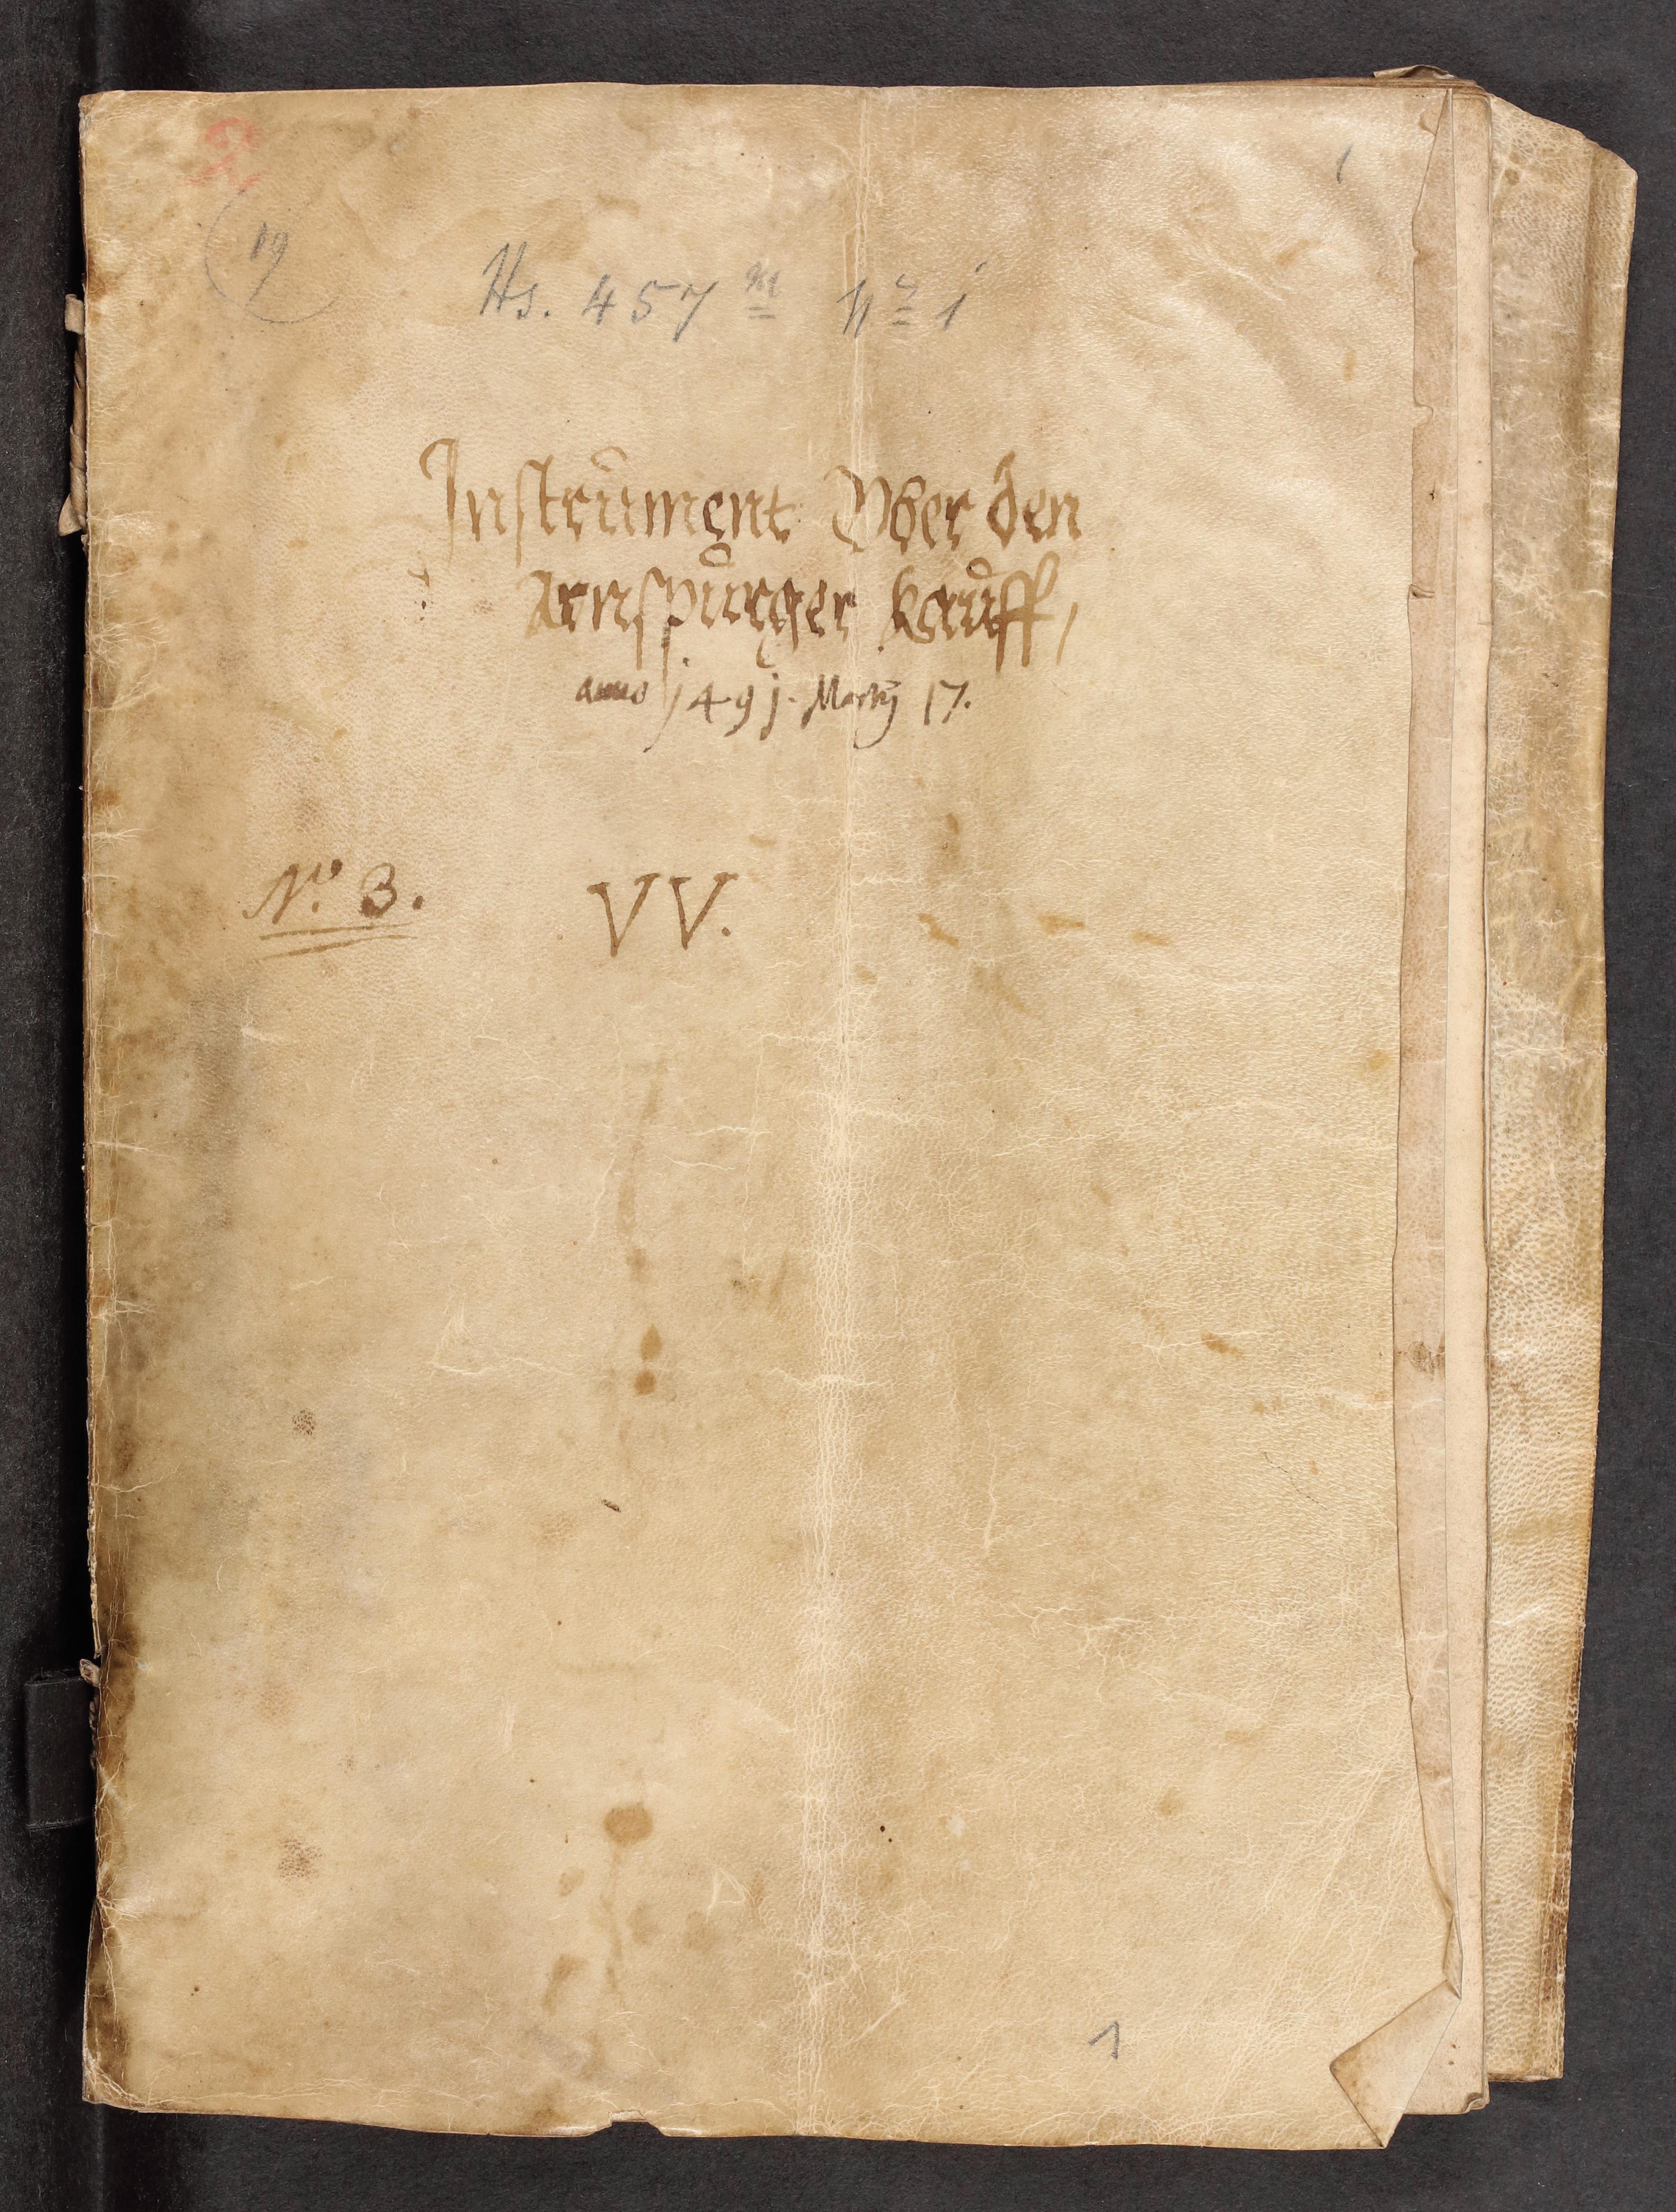 2
1
19
Hs. 457 m nr 1
Instrument Vber den
Arnspurger kauff,
anno 1491. Martij 17.
No. 3. VV.
1